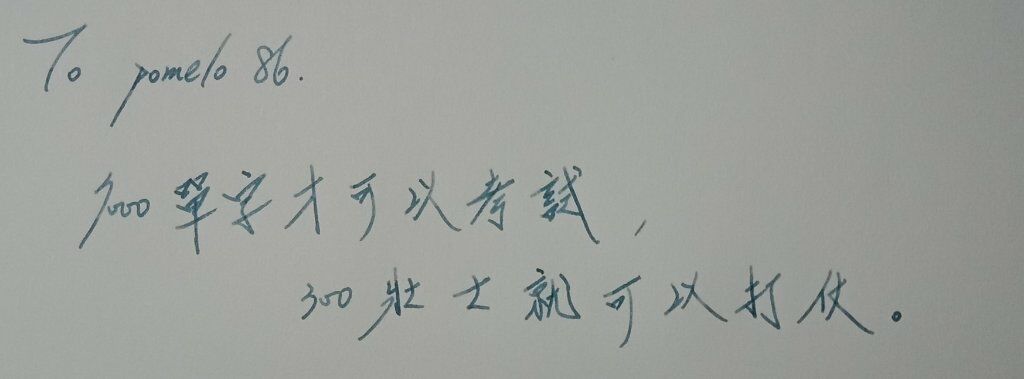 To pomelo 86.
7000 單字才可以考試,
300 壯士就可以打仗。